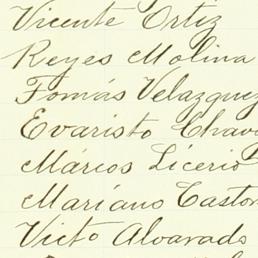 Vicente Ortiz
Reyes Molina
Tomás Velazquez
Evaristo Chav
Márcos Licerio
Mariano Caston
Victo Alvarado